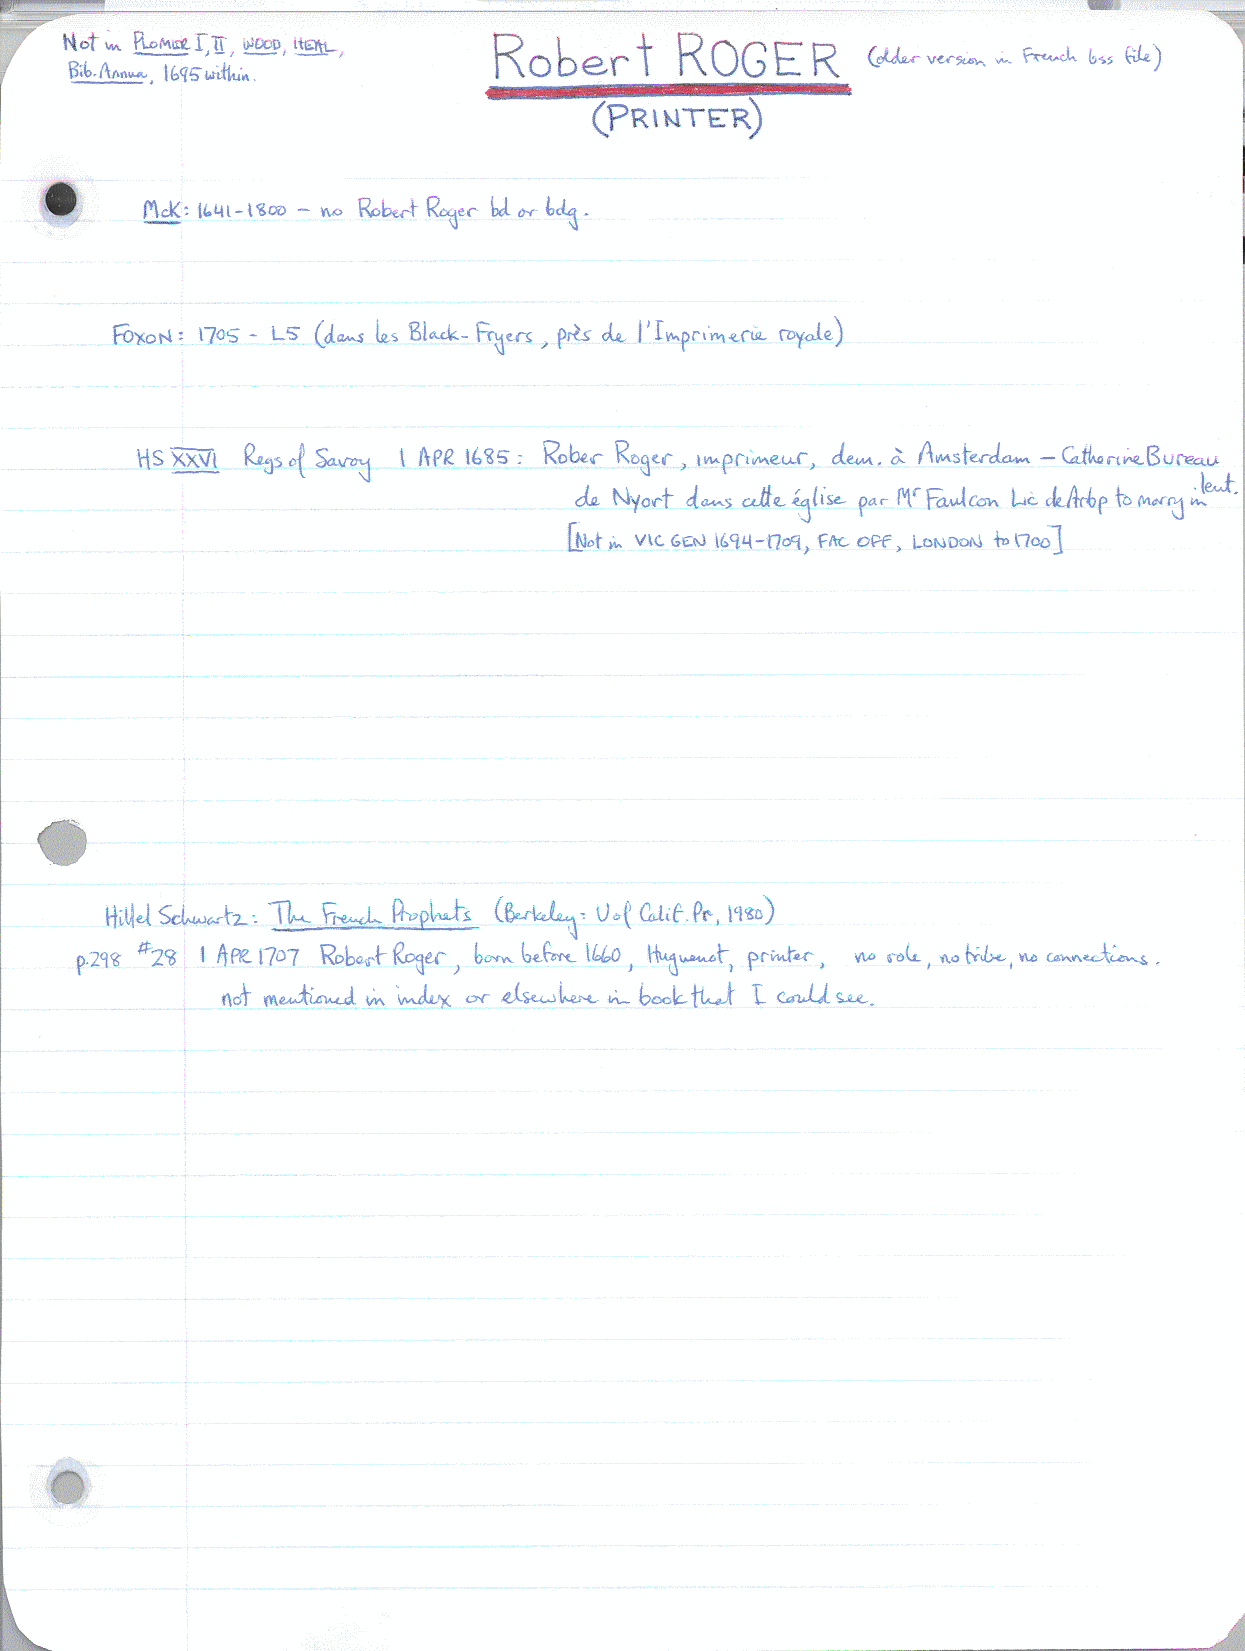 Not in PLOMER I, II, WOOD, HEAL,
Bib. Annua, 1695 within.
Robert ROGER (older version in French bss file)
(PRINTER)
McK: 1641-1800 - no Robert Roger bd or bdg.
FOXON: 1705 - L5 (dans les Black-Fryers, près de l'Imprimerie royale)
HS XXVI Regs of Savoy 1 APR 1685: Rober Roger, imprimeur, dem. à Amsterdam - Catherine Bureau
de Nyort dans cette église par Mr Faulcon Lic de Arbp to marry in lent.
[Not in VIC GEN 1694-1709, FAC OFF, LONDON to 1700]
Hillel Schwartz: The French Prophets (Berkeley: U of Calif. Pr, 1980)
p.298 #28 1 APR 1707 Robert Roger, born before 1660, Huguenot, printer, no role, no tribe, no connections.
not mentioned in index or elsewhere in book that I could see.